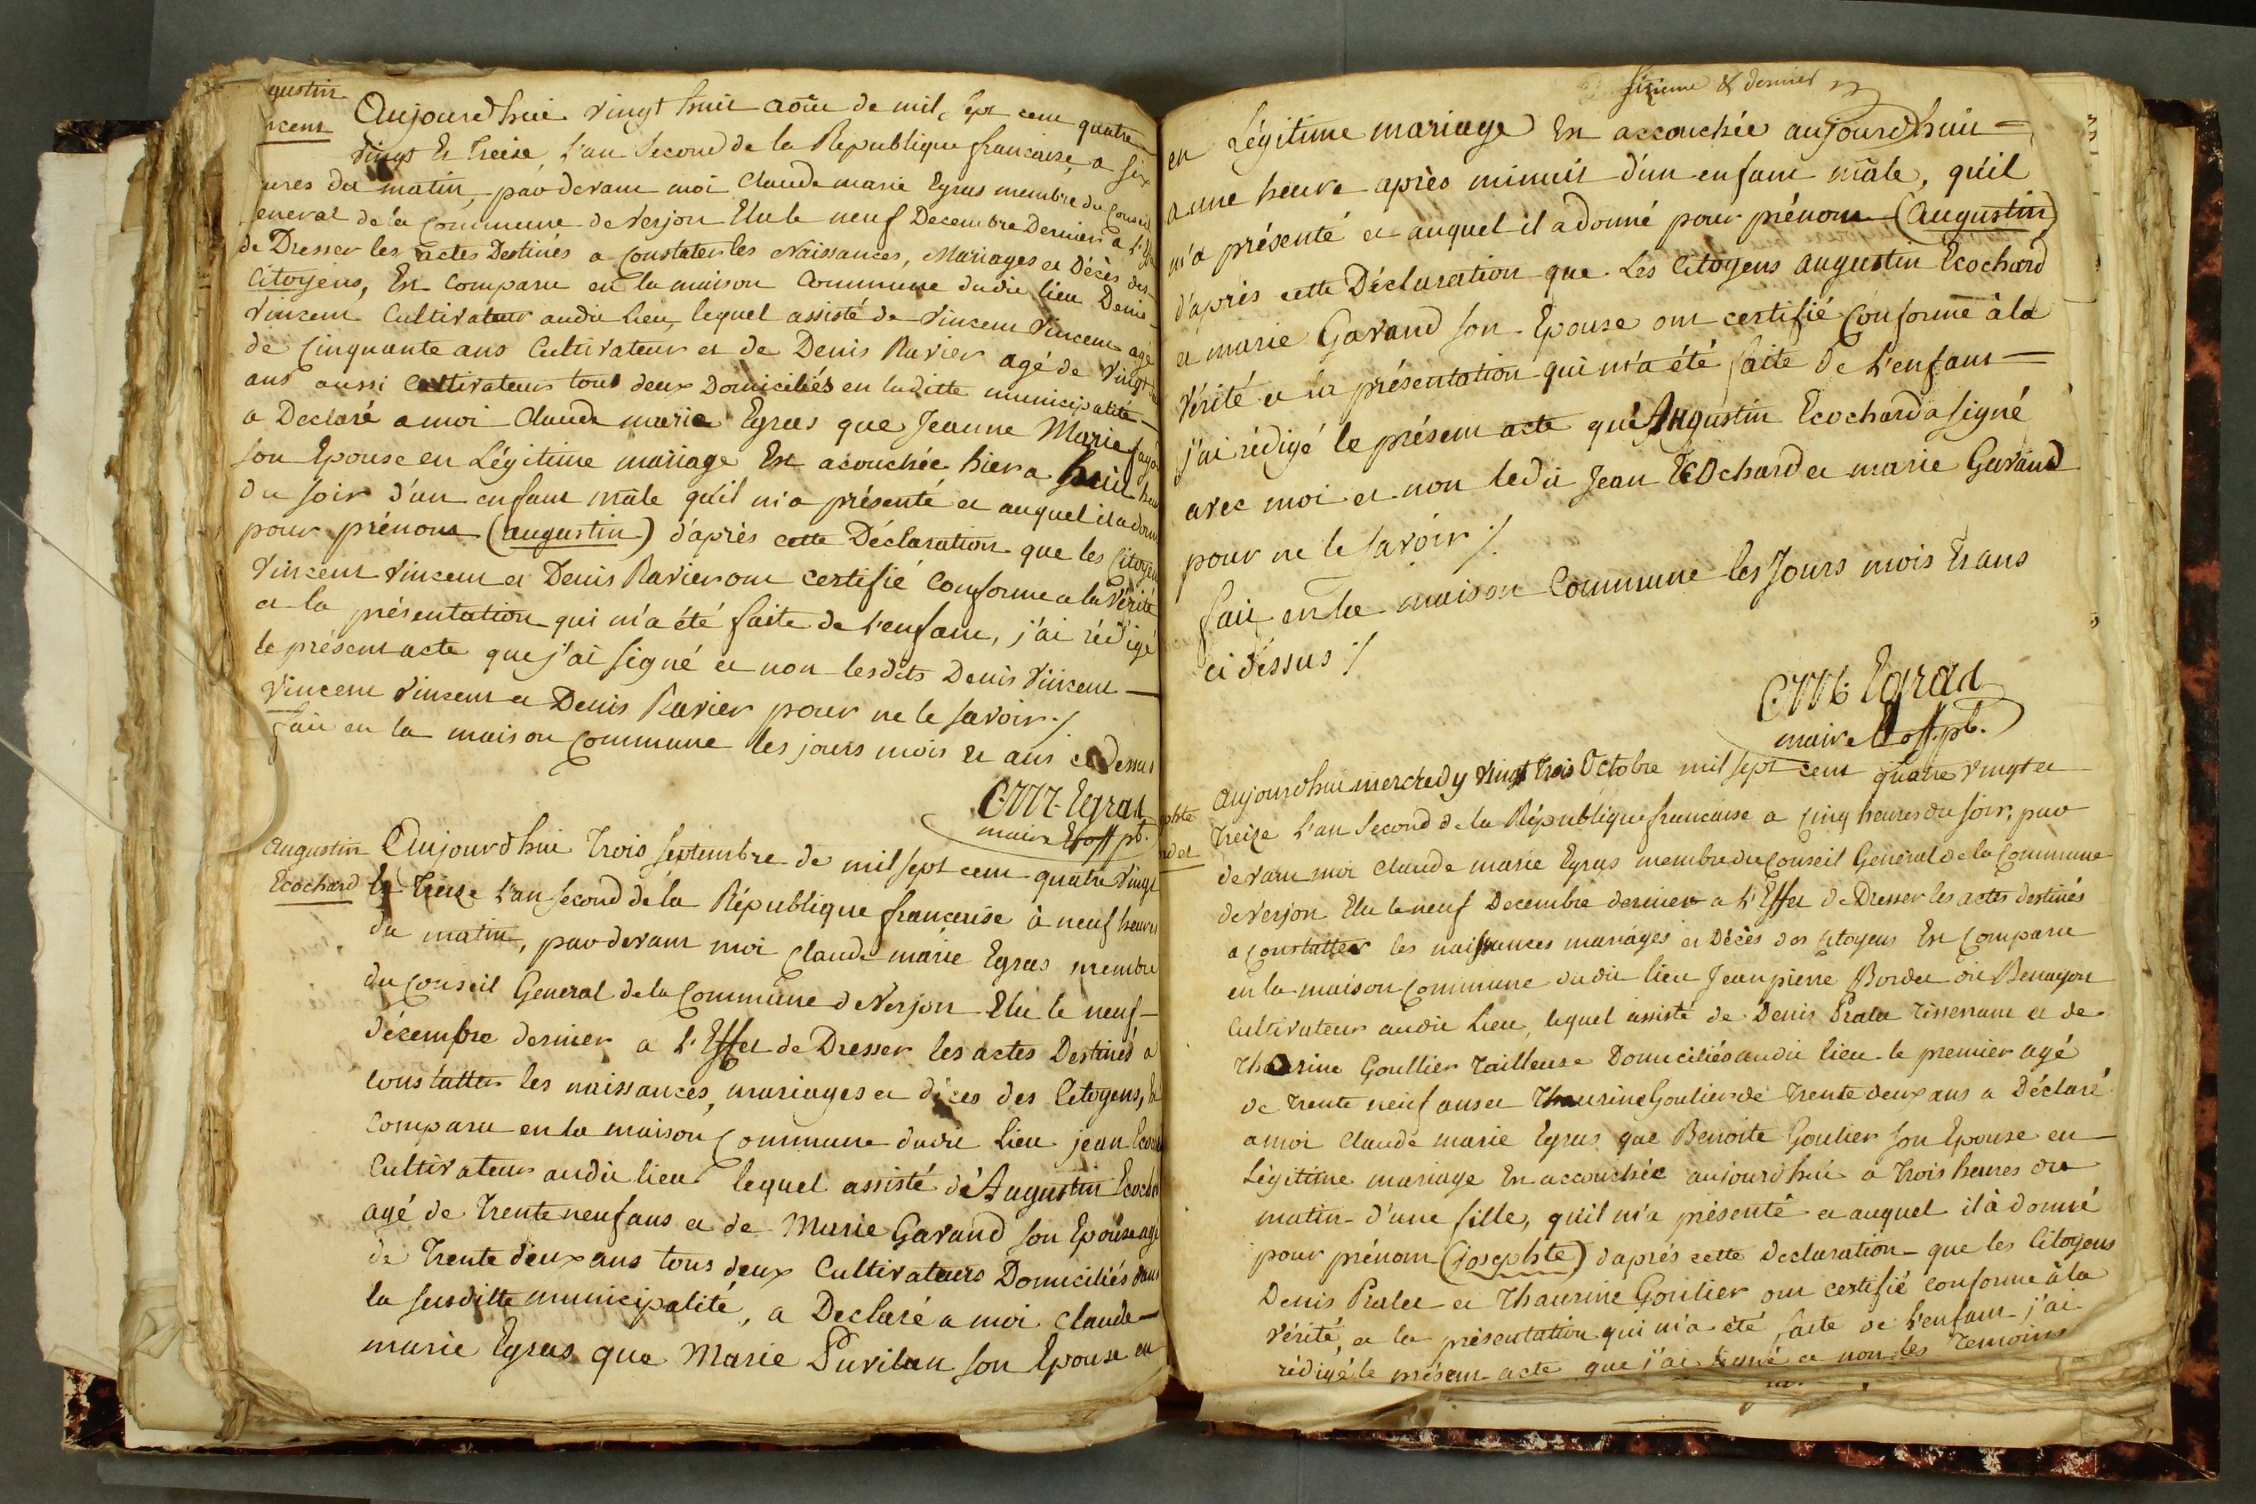 gustin
ncent
Aujourd'hui vingt huit aout de mil sept cent quatre
vingt Et Treise L'an Second de la Republique francaise a six
ures du matin, par devant moi Claude marie Egras membre du Conseil
eneral de la Commune de Verjon Elu le neuf Decembre Dernier a L'Effet
de Dresser les actes Destinés a Constater les Naissances, Mariages et Décès des
Citoyens, Est Comparu en la maison Commune dudit lieu Denis
Vincent Cultivateur audit Lieu, lequel assisté de Vincent Vincent agé
de Cinquante ans Cultivateur et de Denis Ravier agé de vingt
ans aussi Cultivateurs tous deux Domiciliés en laditte municipalité
a Declaré a moi Claude marie Egras que Jeanne Marie
son Epouse en Légitime mariage Est acouchée hier a huit heu
du soir d'un enfant mâle qu'il m'a présenté et auquel il a donné
pour prénom (augustin) d'après cette Déclaration que les Citoyens
Vincent Vincent et Denis Ravier ont certifié Conforme a la Vérité
et la présentation qui m'a été faite de L'enfant, j'ai rédigé
le présent acte que j'ai signé et non lesdits Denis Vincent
Vincent Vincent et Denis Ravier pour ne le savoir ./
fait en la maison Commune les jours mois et ans ci Dessus
C.M. Egras
maire Et off. pb.
Augustin
Ecochard
Aujourd'hui Trois Septembre de mil sept cent quatre Vingt
Et Treize L'an Second de la République francaise à neuf heures
du matin, par devant moi Claude marie Egras membre
du Conseil General de la Commune de Verjon Elu le neuf
décembre dernier a L'Effet de Dresser les actes Destinés a
Constatter les naissances, mariages et déces des Citoyens, Est
Comparu en la maison Commune dudit Lieu jean Ecochard
Cultivateur audit lieu lequel assisté de Augustin Ecochard
agé de Trente neuf ans et de Marie Gavand son Epouse agé
de Trente deux ans tous deux Cultivateurs Domiciliés dans
la susditte municipalité, a Declaré a moi Claude
marie Egras que Marie Puvilan son Epouse en
sixieme & dernier
en Légitime mariage Est accouchée aujourd'huit
a une heure après minuit d'un enfant mâle, qu'il
m'a présenté et auquel il a donné pour prénom (augustin)
d'après cette Déclaration que Les Citoyens augustin Ecochard
et marie Gavand son Epouse ont certifié Conforme à la
Vérité et la présentation qui m'a été faite de L'enfant
j'ai rédigé le présent acte que Augustin Ecochard a signé
avec moi et non ledit Jean Ecochard et marie Gavand
pour ne le savoir ./
fait en la maison Commune les Jours mois Et ans
ci dessus ./
C.M. Egras
maire Et off. pb.
ephte
rdet
Aujourd'hui mercredy vingt trois Octobre mil sept cent quatre vingt et
Treize L'an Second de la République francaise a Cinq heures du soir, par
devant moi Claude marie Egras membre du Conseil Général de la Commune
de Verjon Elu le neuf Decembre dernier a L'Effet de Dresser les actes destinés
a Constatter les naissances mariages et Décès des Citoyens Est Comparu
en la maison Commune dudit lieu Jean pierre Bordet dit Benayon
Cultivateur audit Lieu, lequel assisté de Denis Pralet Tisserant et de
Thaurine Goullier Tailleuse Domiciliés audit lieu le premier agé
de Trente neuf ans et Thaurine Goulier de Trente deux ans a Déclaré
a moi Claude marie Egras que Benoite Goulier son Epouse en
Légitime mariage Est accouchée aujourd'hui a Trois heures du
matin d'une fille, qu'il m'a présenté et auquel il à donné
pour prénom (josephte) d'après cette Declaration que les Citoyens
Denis Pralet et Thaurine Goulier ont certifié conforme à la
Vérité, et la présentation qui m'a été faite de L'enfant j'ai
rédigé le présent acte que j'ai signé et non les Temoins